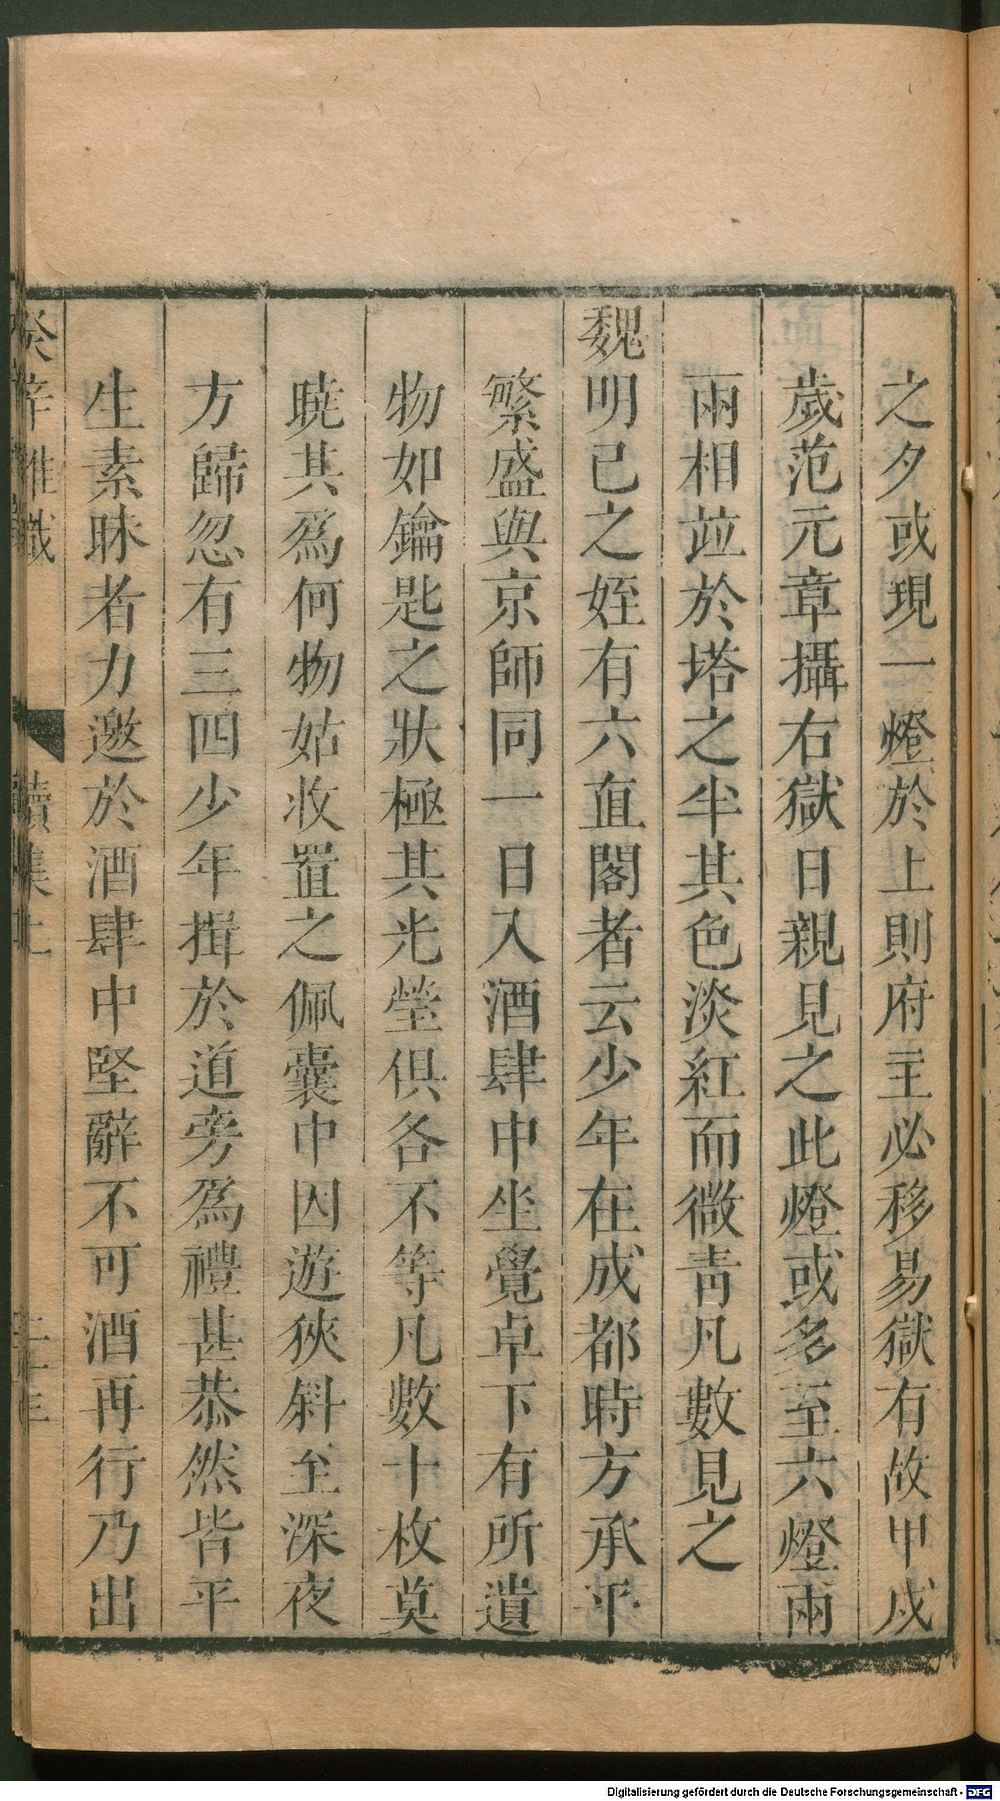 之夕或現一燈於上則府主必移易獄有故甲戌
歲范元章攝右獄日親見之此燈或多至六燈兩
兩相竝於塔之半其色淡紅而微靑凡數見之
魏明己之姪有六直閣者云少年在成都時方承平
繁盛與京師同一日入酒肆中坐覺卓下有所遺
物如鑰匙之狀極其光瑩俱各不等凡數十枚莫
曉其爲何物姑收置之佩囊中因遊狹斜至深夜
方歸忽有三四少年揖於道旁爲禮甚恭然皆平
生素昧者力邀於酒肆中堅辭不可酒再行乃出
癸辛雜識 續集上
Digitalisierung gefördert durch die Deutsche Forschungsgemeinschaft - DFG